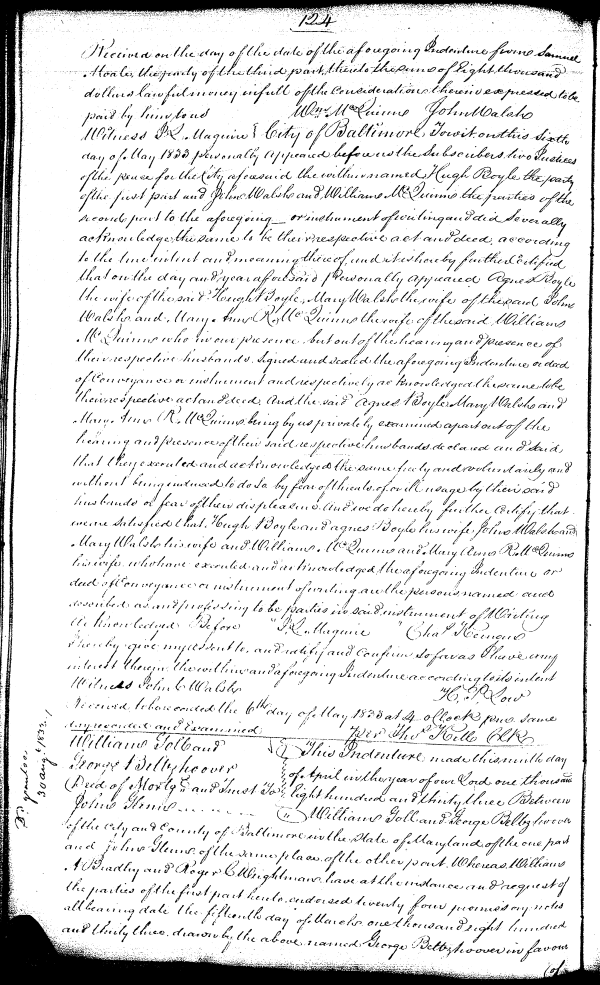 124
Received on the day of the date of the aforegoing Indenture from Samuel
Moale the party of the third part thereto the sum of Eight thousand
dollars lawful money in full of the Consideration therein expressed to be
paid by him to us Wm McQuinn John Walsh
Witness J L Maguire } City of Baltimore To wit on this Sixth
day of May 1833 personally appeared before us the Subscribers two Justices
of the peace for the City aforesaid the within named Hugh Boyle the party
of the first part and John Walsh and William McQuinn the parties of the
second part to the aforegoing or instrument of writing and did Severally
acknowledge the same to be their respective act and deed according
to the true intent and meaning thereof and it is hereby further Certified
that on the day and year aforesaid personally appeared Agnes Boyle
the wife of the said Hugh Boyle, Mary Walsh the wife of the said John
Walsh and Mary Ann R. McQuinn the wife of the said William
McQuinn who in our presence but out of the hearing and presence of
their respective husbands signed and sealed the aforegoing Indenture or deed
of Conveyance or instrument and respectively acknowledged the same to be
their respective act and deed. And the said Agnes Boyle Mary Walsh and
Mary Ann R. McQuinn being by us privately examined apart out of the
hearing and presence of their said respective husbands declared and said
that they executed and acknowledged the same freely and voluntarily and
without being induced to do so by fear of threats of or ill usage by their said
husbands or fear of their displeasure. And we do hereby further Certify that
we are satisfied that Hugh Boyle and Agnes Boyle his wife John Walsh and
Mary Walsh his wife and William McQuinn and Mary Ann R McQuinn
his wife who have executed and acknowledged the aforegoing Indenture or
deed of Conveyance or instrument of writing are the persons named and
described as and professing to be parties in said instrument of Writing
Acknowledged Before J L Maguire Chas
I hereby give my assent to, and ratify and Confirm so far as I have any
interest therein the within and aforegoing Indenture according to its intent
Witness John C Walsh H. P. Low
Received to be recorded the 6th day of May 1833 at 4 oClock pm same
day recorded and Examined per Thos Kell Clk
William Toll and
George Beltzhoover
Deed of Mortg and Trust To
John Glenn
This Indenture made this ninth day
of April in the year of our Lord one thousand
Eight hundred and thirty three Between
William Toll and George Beltzhoover
of the City and County of Baltimore in the State of Maryland of the one part
and John Glenn of the same place of the other part. Whereas William
A Bradley and Roger C Wrightman have at the instance and request of
the parties of the first part hereto endorsed twenty four promissory notes
all bearing date the fifteenth day of March one thousand eight hundred
and thirty three drawn by the above named George Beltzhoover in favour
(of
30 aug 1833